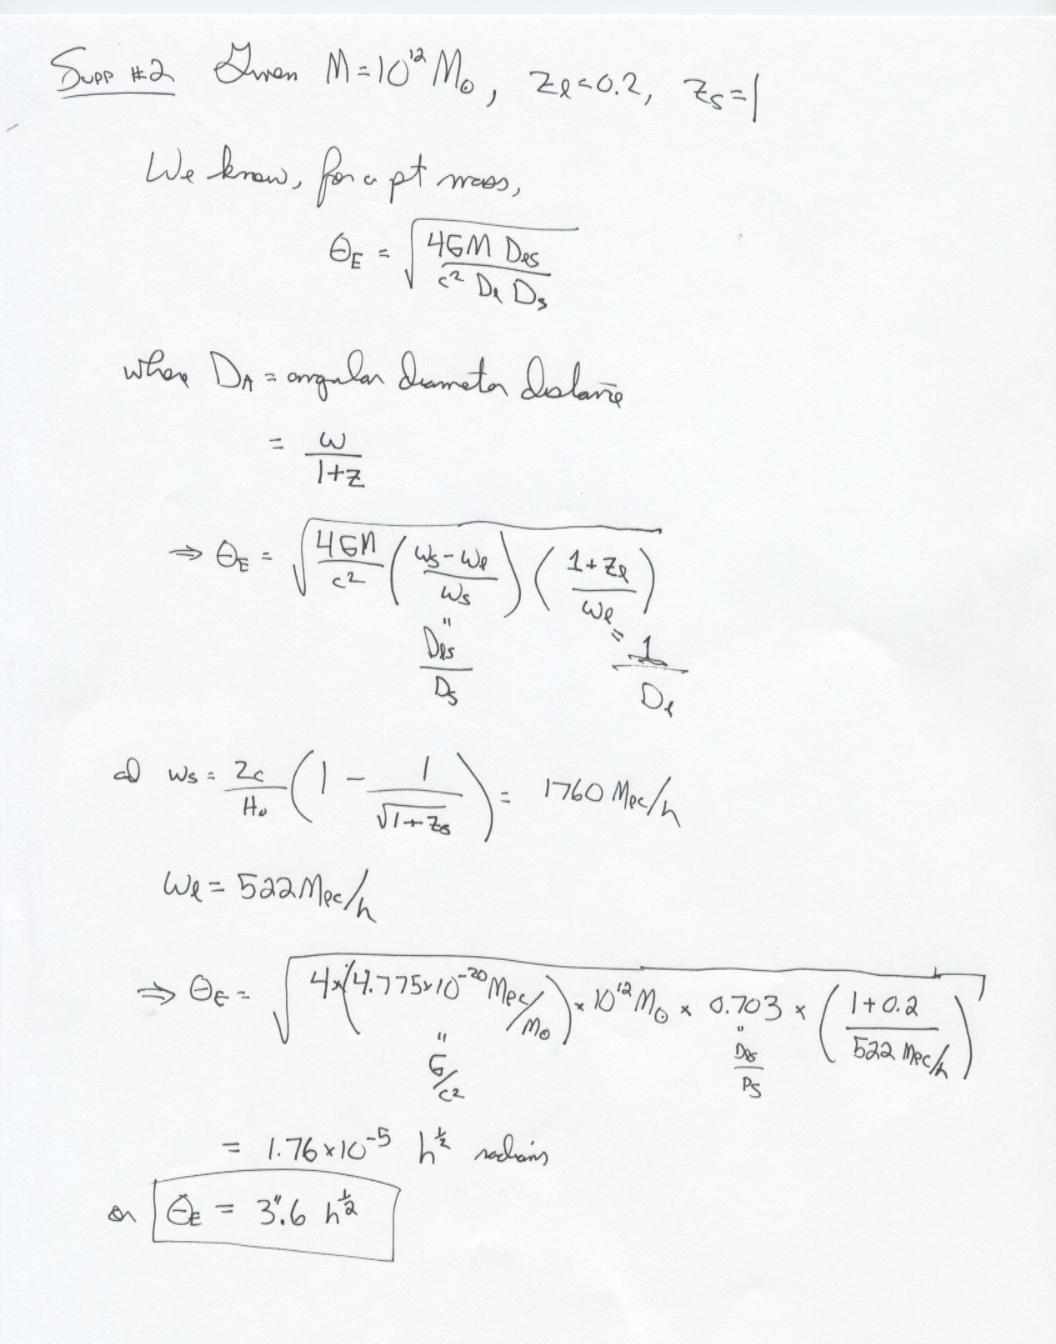 Supp #2 Given M = 10^12 M☉, zℓ = 0.2, zs = 1
We know, for a pt mass,
θE = √(4GM Dℓs / c² Dℓ Ds)
where DA = angular diameter distance
= ω / 1+z
⇒ θE = √(4GM/c² (ωs - ωℓ / ωs) (1 + zℓ / ωℓ))
" Dℓs / Ds = 1 / Dℓ
a) ωs = 2c/H₀ (1 - 1/√(1+zs)) = 1760 Mpc/h
ωℓ = 522 Mpc/h
⇒ θE = √(4 × (4.775×10^-20 Mpc/M☉) × 10^12 M☉ × 0.703 × (1+0.2 / 522 Mpc/h))
" G/c² " Dℓs/Ds
= 1.76×10^-5 h^½ radians
or θE = 3".6 h^½